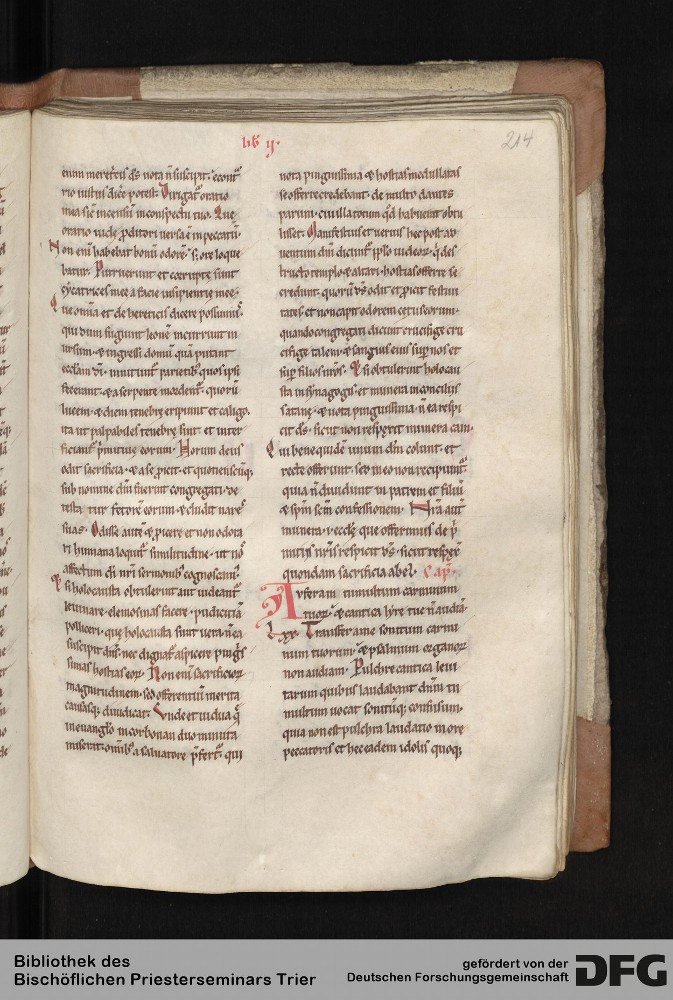 lib ij.
214
eum meretris ds uota n suscipit. econt
rio iustus dice potest. Dirigat oratio
mea sic incensu in conspectu tuo. Que
oratio iude proditori uersa e in peccatu.
Non eni habebat bonu odore. s; ore loque
batur. Putruerunt et corrupte sunt
cycatrices mee a facie insipientie mee.
Que omia et de hereticis dicere possumus.
qui dum fugiunt leone incurrunt in
ursum. & ingressi domu qua putant
ecclam di. innitunt parietib quos ipsi
fecerant. & a serpente mordent. quoru
lucem. & diem tenebre eripiunt et caligo.
ita ut palpabiles tenebre sint et inter
ficiant primitiue eorum. Horum deus
odit sacrificia. & a se proicit. et quotienscuq;
sub nomine dni fuerint congregati. de
testatur fetore eorum. & cludit nares
suas. Odisse aute & proicere et non odora
ri humana loquit similitudine. ut nos
affectum di nri sermonib cognoscamus.
Et si holocausta obtulerint aut uideant
ieiunare. elemosinas facere. pudicitia
polliceri. que holocausta sunt uera. n ea
suscipit dns. nec dignat aspicere pingis
simas hostias eor. Non eni sacrificior
magnitudinem. sed offerentiu merita
causasq; diiudicat. Vnde et uidua que
in euanglo in corbonan duo minuta
miserat. omib a saluatore pfert. qui
uota pinguissima & hostias medullatas
se offerre credebant. de multo dantes
parum. cu illa totum qd habuerat obtu
lisset. Manifestius et uerius hec post ad
uentum dni dicunt ipso iudeor. qi des
tructo templo. & altari. hostias offerre se
credunt. quoru ds odit et proicit festiui
tates. et non capit odorem cetus eorum.
quando congregati dicunt crucifige cru
cifige talem. & sanguis eius sup nos et
sup filios nros. Et si obtulerint holocau
sta in synagogis. et munera in conciliis
satane. & uota pinguissima. n ea respi
cit ds. sicut non respexit munera cain.
Qui bene quide unum dm colunt. et
recte offerunt. sed in eo non recipiunt.
quia n diuidunt in patrem et filiu
& spm scm confessionem. Nra aut
munera. i. eccle que offerimus de pri
mitiis nris respicit ds. sicut respex
quondam sacrificia abel. Cap.
Auferam tumultum carminum
tuor. & cantica lyre tue n audia.
Lxx. Transfer a me sonitum carmi
num tuorum. & psalmum organor
non audiam. Pulchre cantica leui
tarum quibus laudabant dnm tu
multum uocat sonituq; confusum.
quia non est pulchra laudatio in ore
peccatoris et hec eadem idolis quoq;
Bibliothek des
Bischöflichen Priesterseminars Trier
gefördert von der
Deutschen Forschungsgemeinschaft
DFG